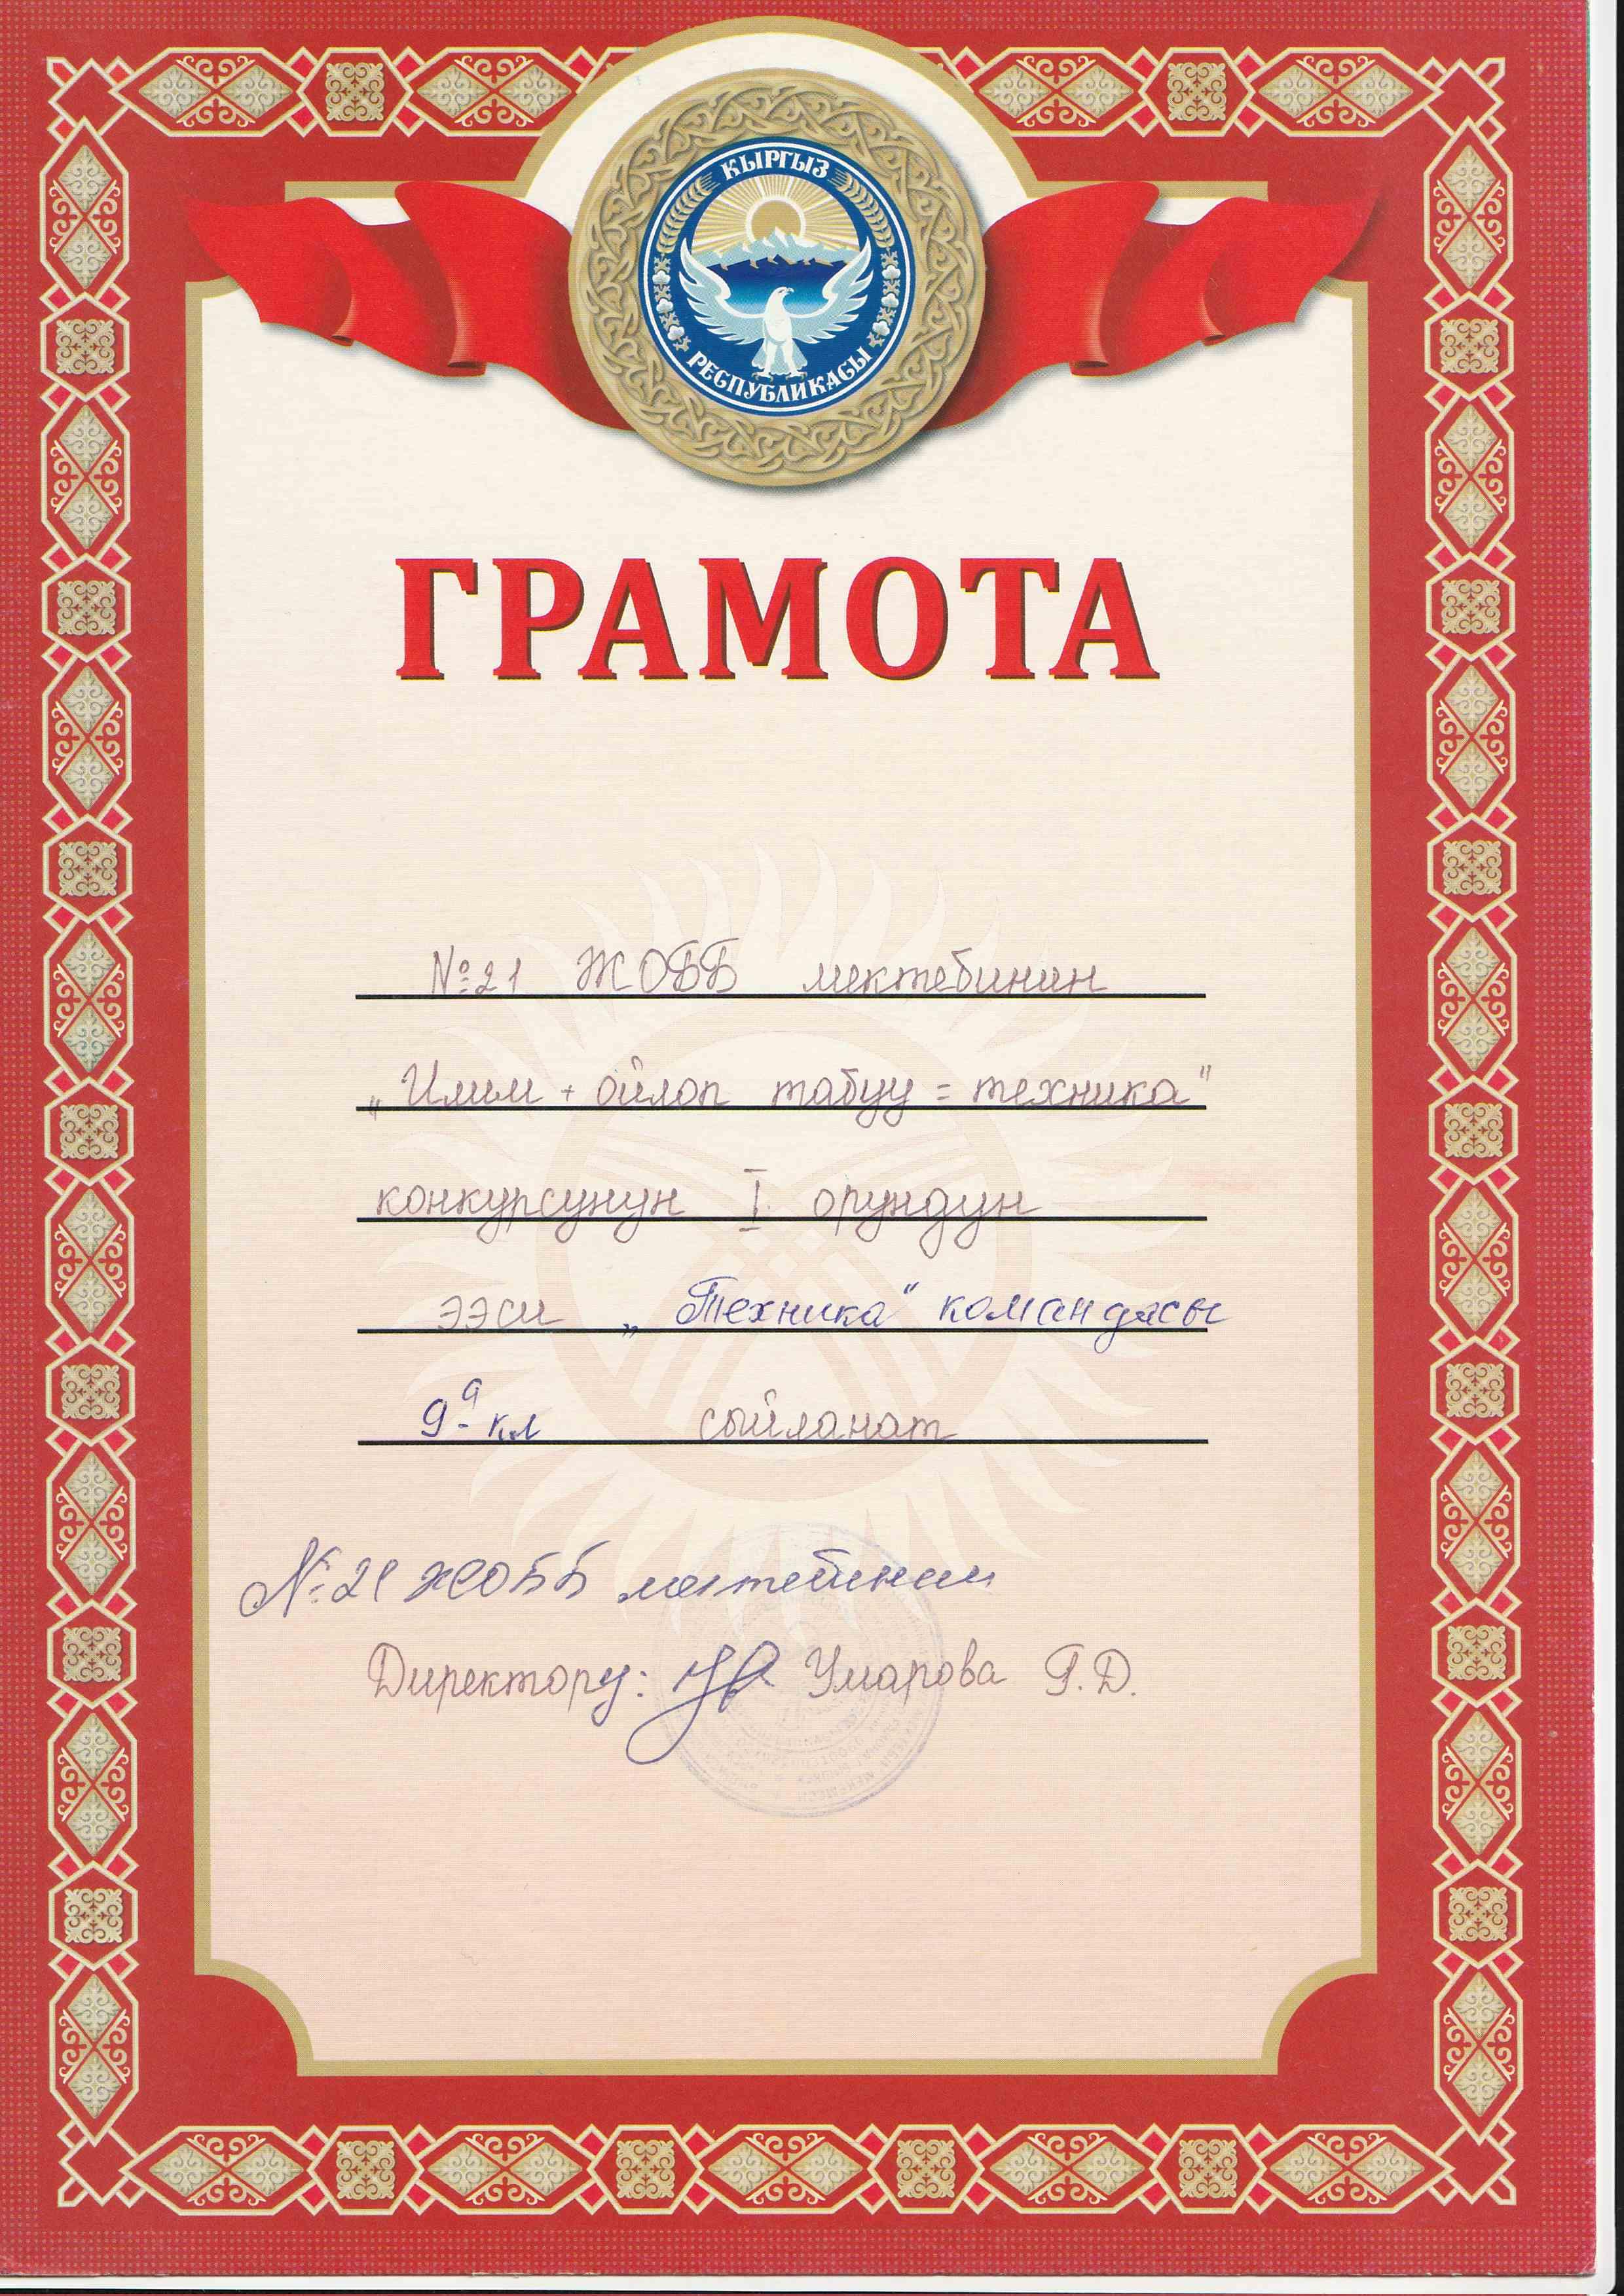 КЫРГЫЗ
РЕСПУБЛИКАСЫ
ГРАМОТА
№21 ЖОББ мектебинин
„Илим + ойлоп табуу = техника"
конкурсунун I орундун
ээси „Техника" командасы
9а- кл сыйланат
№21 ЖОББ мектебинин
Директору: Умарова Г.Д.